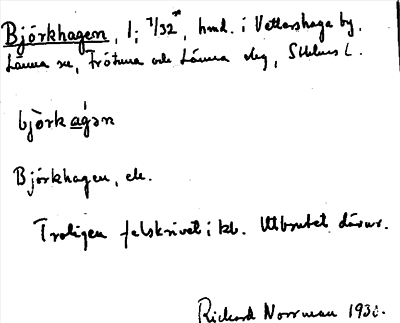 Björkhagen, 1; 7/32, hmd. i Vettershaga by,
Länna sn, Frötuna och Länna skg, Sthlms l.
björkagən
Björkhagen, ek.
Troligen felskrivet i kb. Utbrutet därur.
Rickard Norrman 1930.